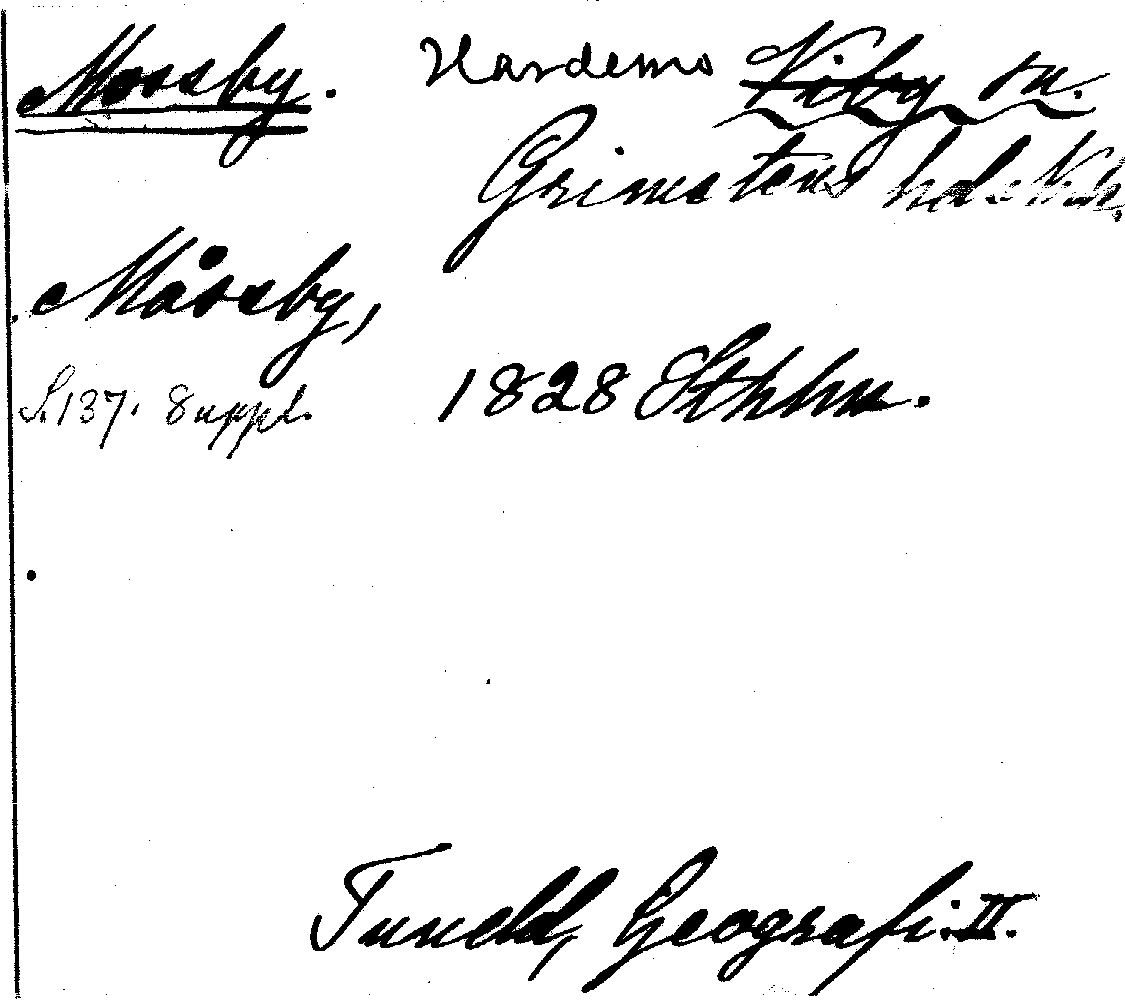 Mossby. Hardemo Viby sn.
Grimstens hd Nke.
Måssby,
S. 137. Suppl. 1828 Sthlm.
Tuneld, Geografi. II.